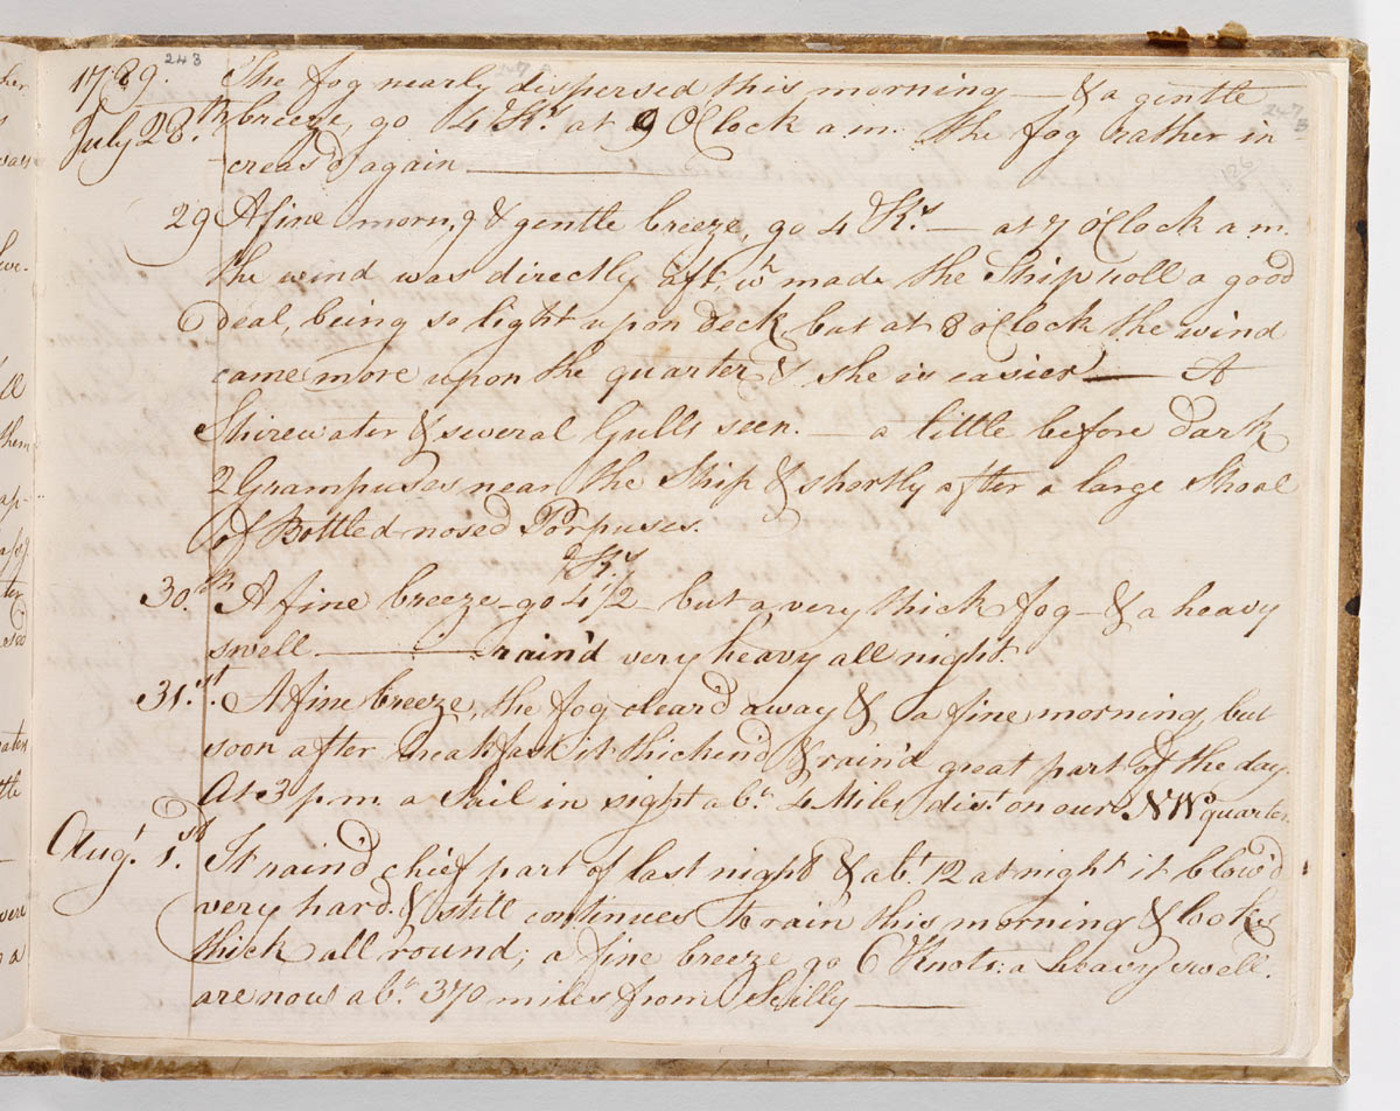 243
1789. The fog nearly dispersed this morning — & a gentle
July 28.th breeze, go 4 K.s at 9 O'Clock a m. the fog rather in
creas'd again
29 A fine morn.g & gentle breeze, go 4 K.s — at 7 o'Clock a m.
the wind was directly aft, w.h made the Ship roll a good
Deal, being so light upon Deck, but at 8 o'Clock the wind
came more upon the quarter & she is easier — A
Shirewater & several Gulls seen. — a little before Dark
2 Grampuses near the Ship & shortly after a large Shoal
of Bottled-nosed Porpuses.
K.s
30.th A fine breeze – go 4 1/2 but a very thick fog – & a heavy
swell. — rain'd very heavy all night.
31.st. A fine breeze, the fog clear'd away & a fine morning, but
soon after breakfast it thicken'd & rain'd great part of the day.
At 3 p.m. a Sail in sight ab.t 4 Miles dis.t on our NW quarter.
Aug.t 1.st It rain'd chief part of last night & ab.t 12 at night it blow'd
very hard. & still continues to rain this morning & looks
thick all round; a fine breeze go 6 Knots: a heavy swell.
are now ab.t 370 miles from Scilly —